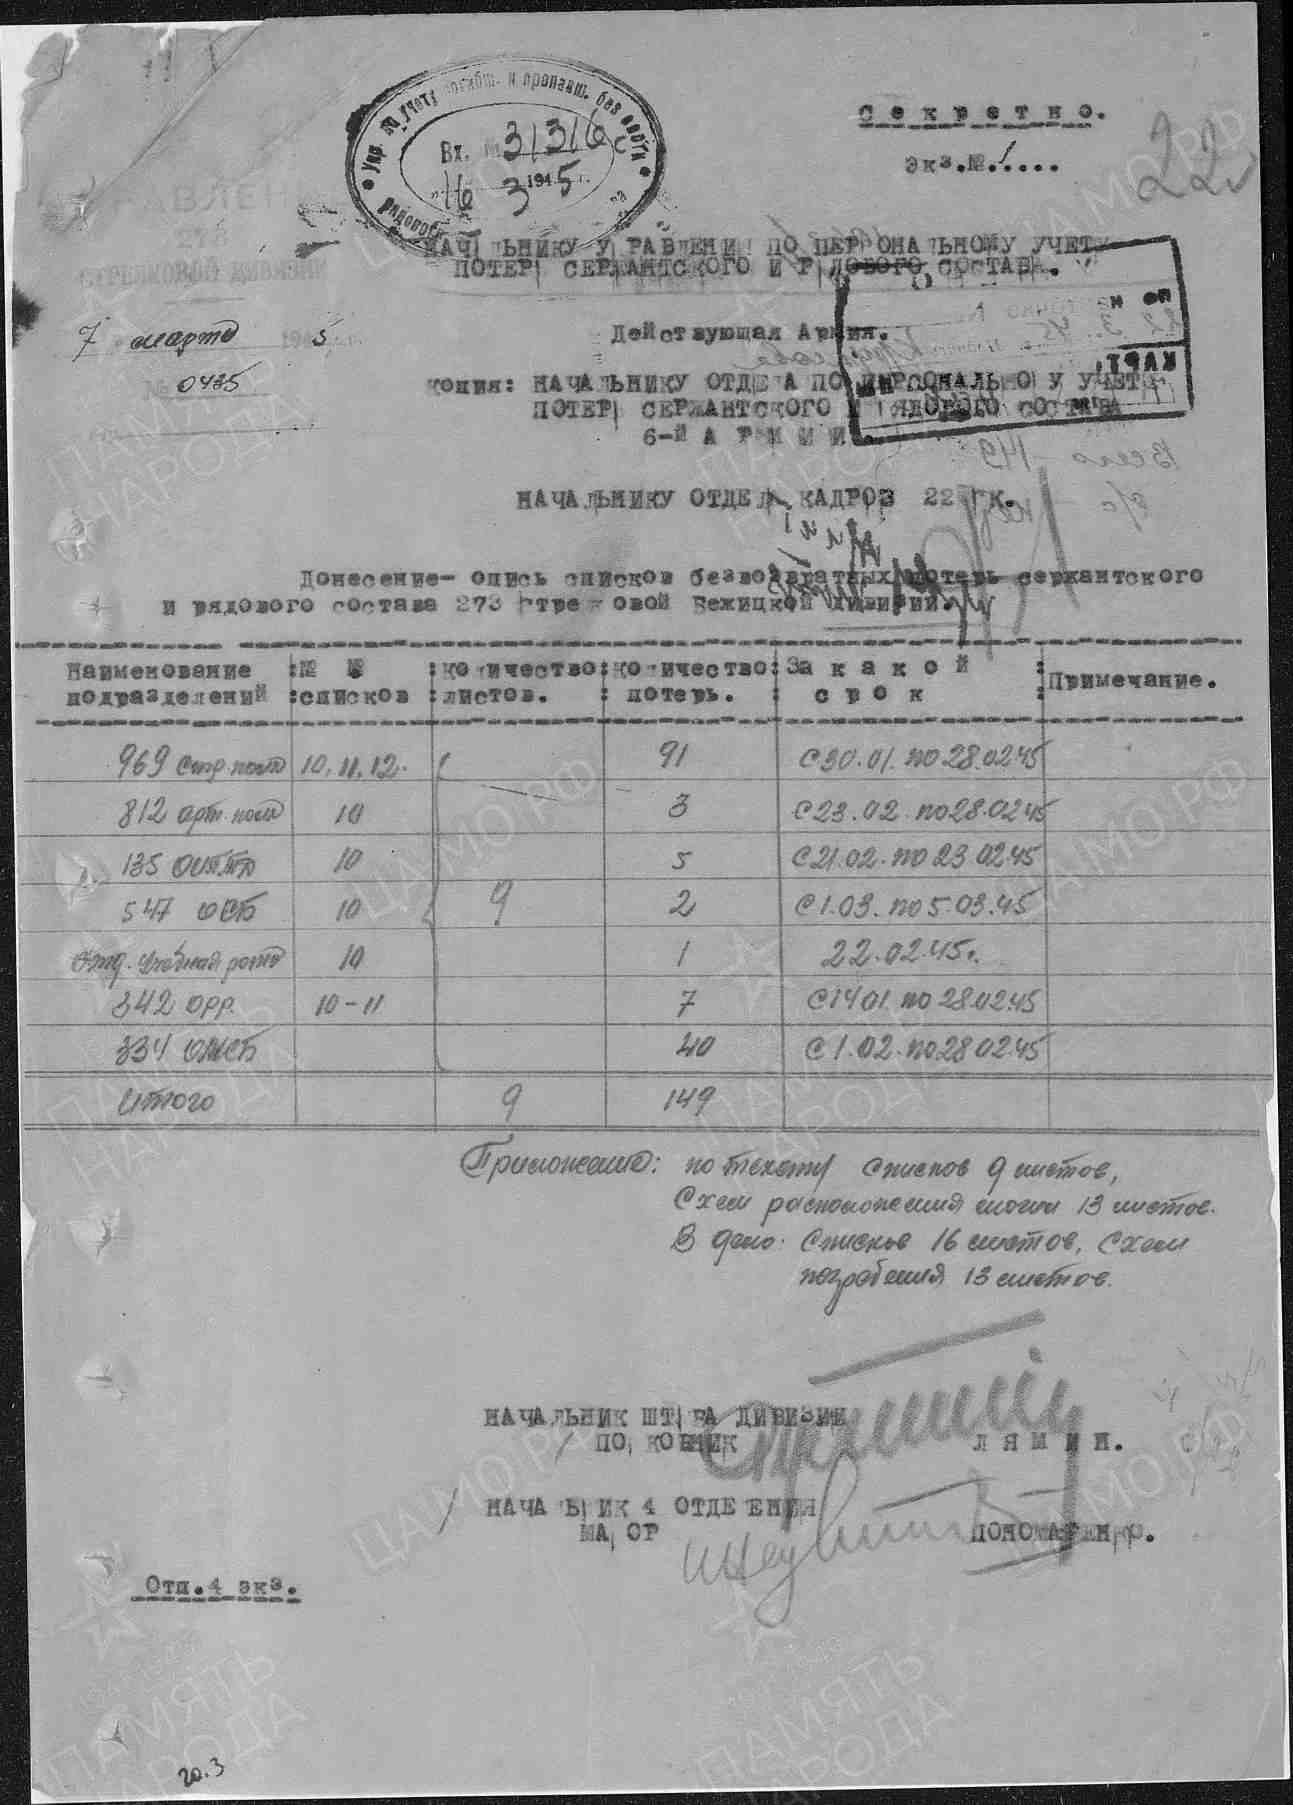 Упр. по учету погибш. и пропавш. без вести
Вх. № 31316с
"16" 3 1945 г.
рядового
Секретно.
Экз.№.1....
22
УПРАВЛЕНИЕ
273
СТРЕЛКОВОЙ ДИВИЗИИ
7 марта 1945 г.
№ 0435
НАЧАЛЬНИКУ УПРАВЛЕНИЯ ПО ПЕРСОНАЛЬНОМУ УЧЕТУ
ПОТЕРЬ СЕРЖАНТСКОГО И РЯДОВОГО СОСТАВА.
Действующая Армия.
копия: НАЧАЛЬНИКУ ОТДЕЛА ПО ПЕРСОНАЛЬНОМУ УЧЕТУ
ПОТЕРЬ СЕРЖАНТСКОГО И РЯДОВОГО СОСТАВА
6-Й АРМИИ.
Всего - 149
НАЧАЛЬНИКУ ОТДЕЛА КАДРОВ 22 СК.
Донесение- опись списков безвозвратных потерь сержантского
и рядового состава 273 стрелковой Бежицкой дивизии.
Наименование подразделений :№ № списков :количество листов. :количество потерь. :За какой срок :Примечание.
969 стр. полк 10, 11, 12. 91 С 30.01. по 28.02.45
812 арт. полк 10 3 С 23.02. по 28.02.45
135 ОИПТД 10 5 С 21.02. по 23.02.45
547 ОСБ 10 9 2 С 1.03. по 5.03.45
Отд. Учебная рота 10 1 22.02.45г.
342 орр. 10-11 7 С 14.01. по 28.02.45
334 ОМСБ 40 С 1.02. по 28.02.45
Итого 9 149
Приложение: по тексту списков 9 листов,
Схем расположения могил 13 листов.
В дело: Списков 16 листов, Схем
погребения 13 листов.
НАЧАЛЬНИК ШТАБА ДИВИЗИИ
ПОЛКОВНИК ЛЯМИН.
НАЧАЛЬНИК 4 ОТДЕЛЕНИЯ
МАЙОР ПОНОМАРЕНКО.
Отп.4 экз.
20.3
ЦАМО РФ
ПАМЯТЬ НАРОДА